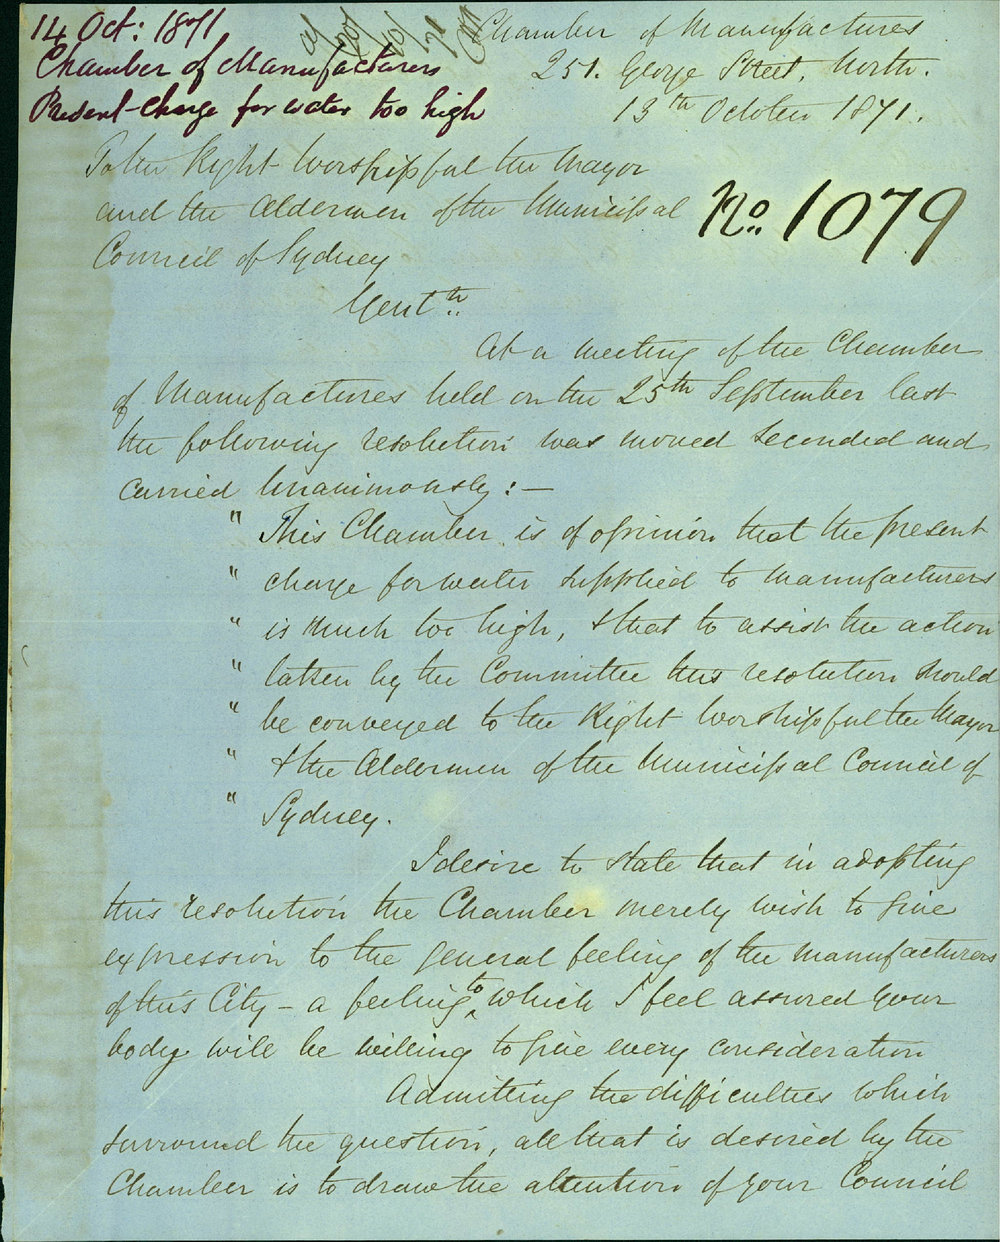 14 Oct: 1871
Chamber of Manufacturers
Present charge for water too high
Chamber of Manufactures
251. George Street, North.
13th October 1871.
No. 1079
To the Right Worshipful the Mayor
and the Aldermen of the Municipal
Council of Sydney
Gentn.
At a meeting of the Chamber
of Manufactures held on the 25th September last
the following resolution was moved seconded and
carried Unanimously:—
" This Chamber is of opinion that the present
" charge for water supplied to manufacturers
" is much too high, & that to assist the action
" taken by the Committee this resolution should
" be conveyed to the Right Worshipful the Mayor
" & the Aldermen of the Municipal Council of
" Sydney.
I desire to state that in adopting
this resolution the Chamber merely wish to give
expression to the general feeling of the manufacturers
of this City – a feeling to which I feel assured your
body will be willing to give every consideration
Admitting the difficulties which
surround the question, all that is desired by the
Chamber is to draw the attention of your Council